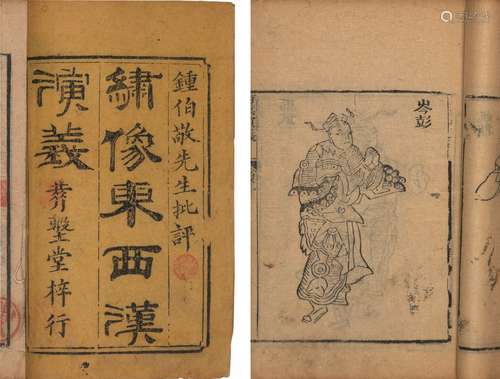 鍾伯敬先生批評
繡像東西漢
演義
堂梓行
岑彭